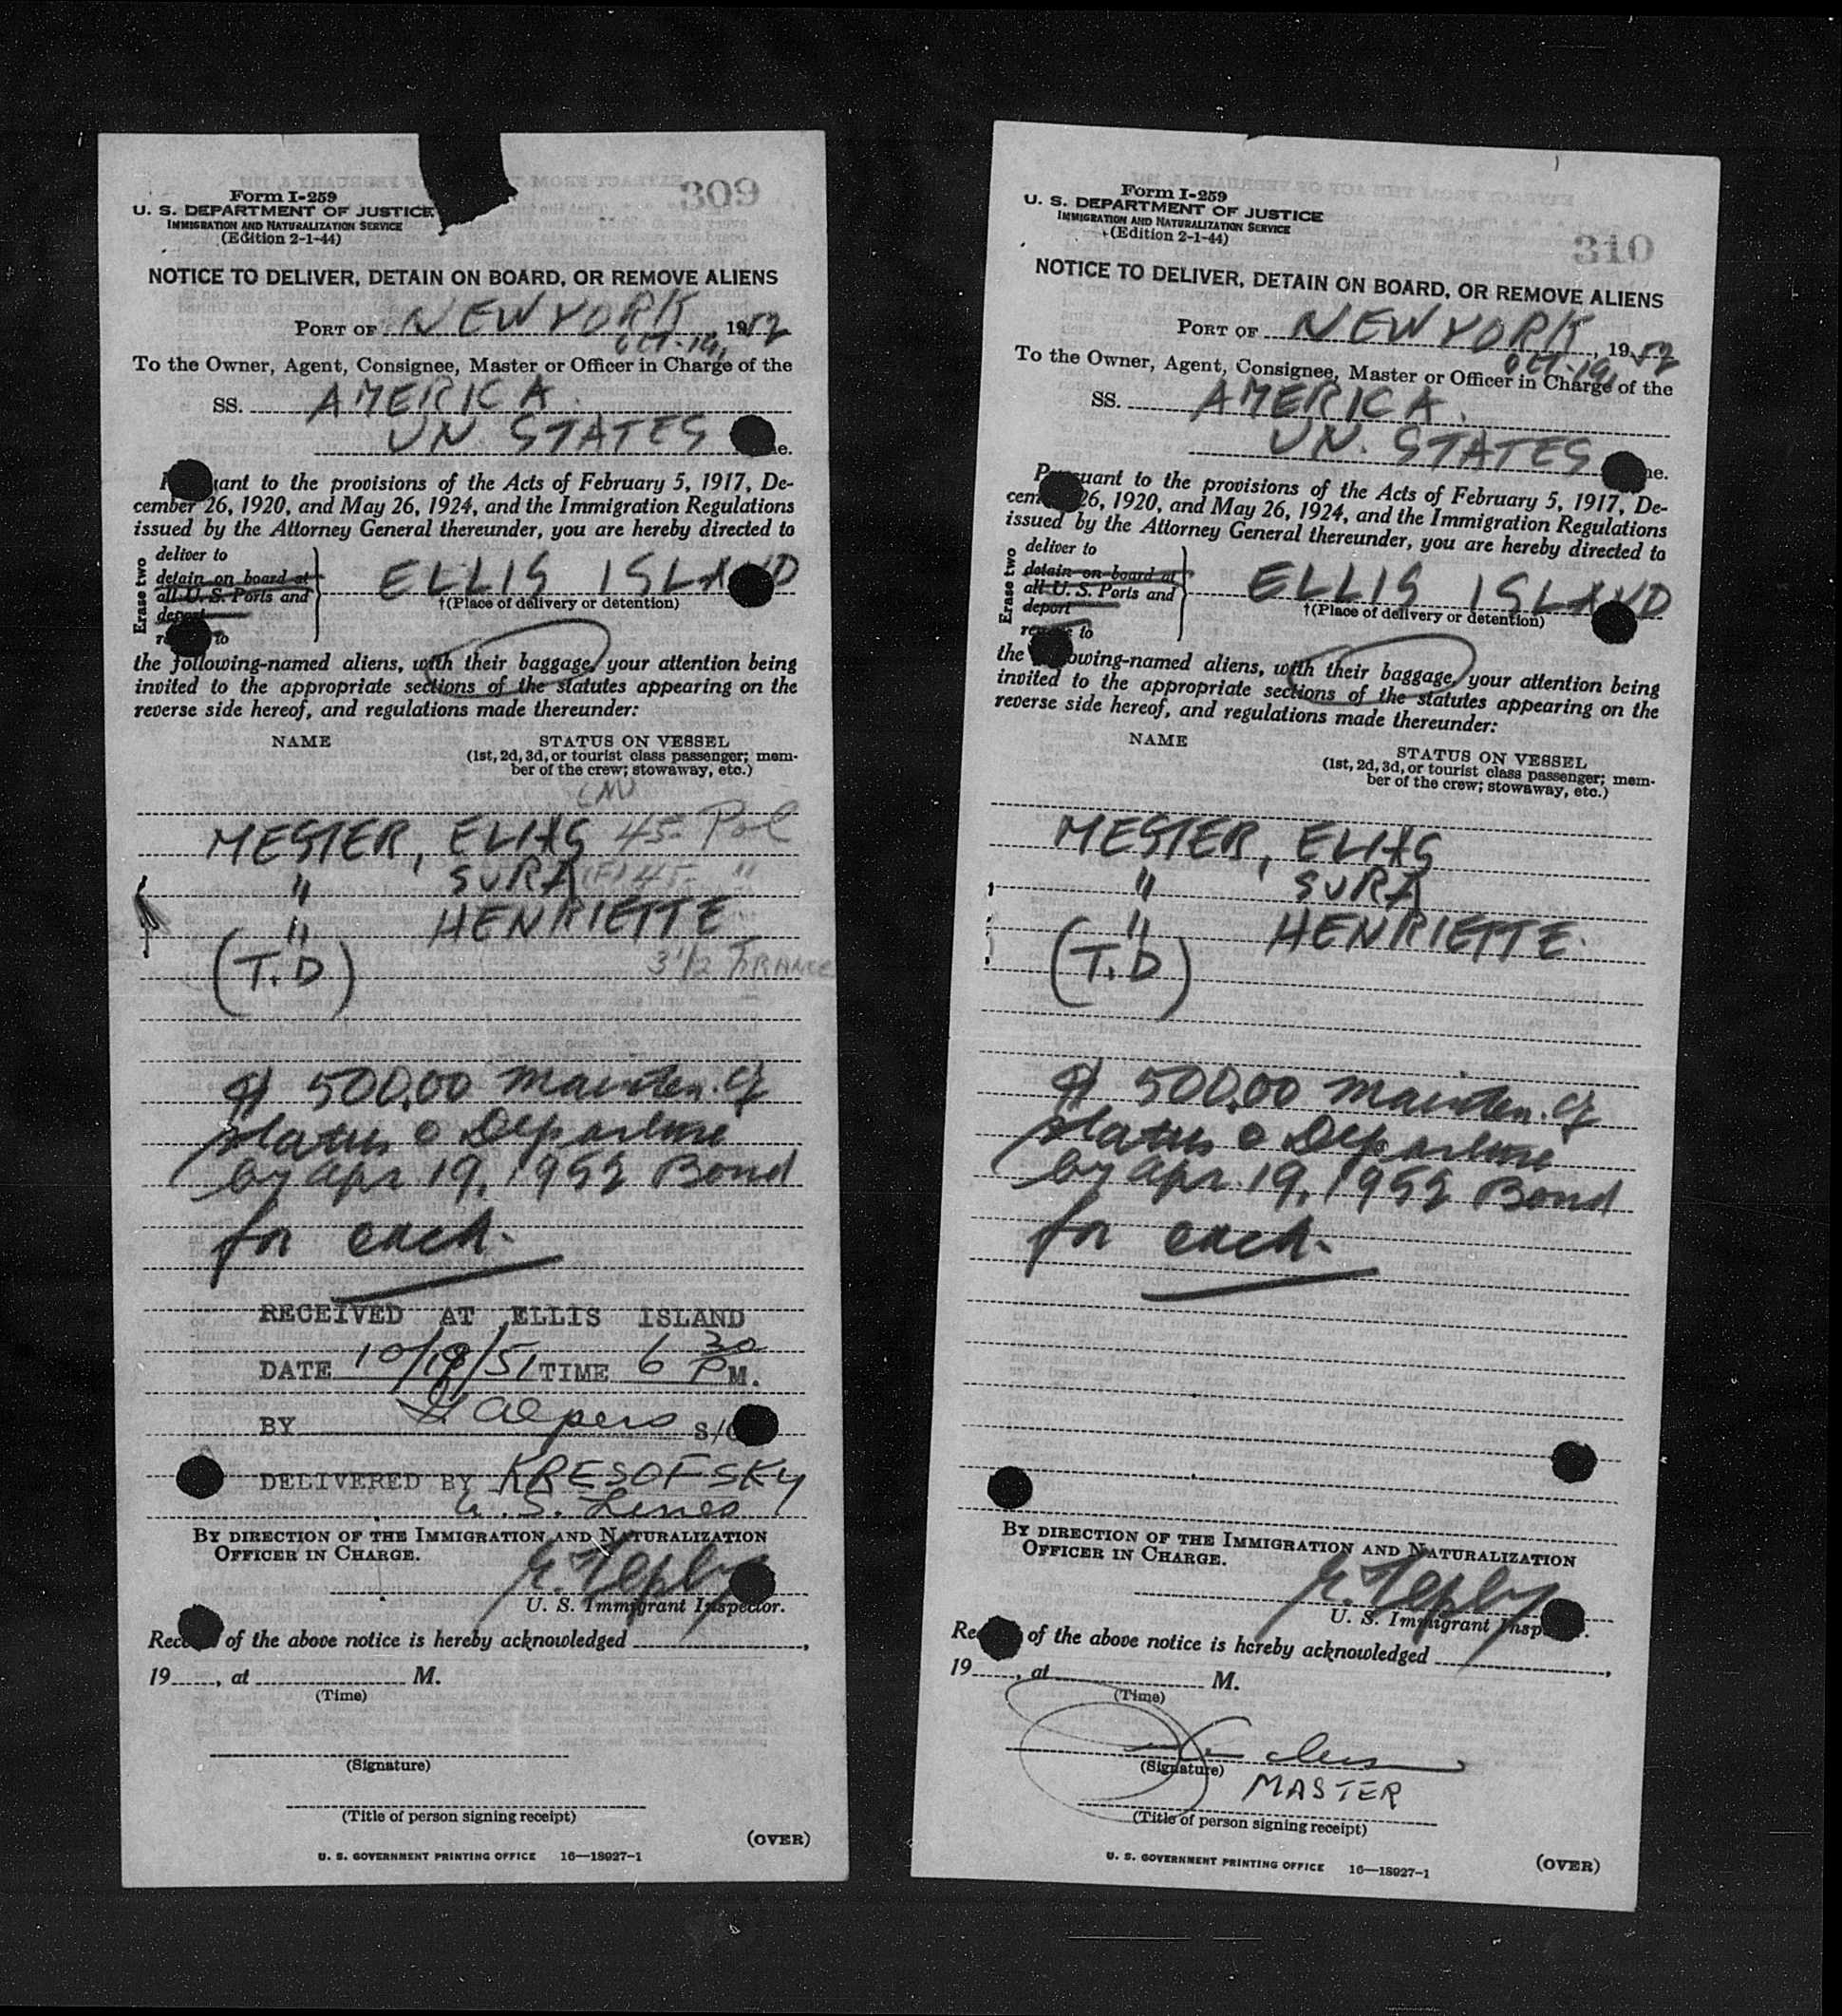 309
Form I-259
U. S. DEPARTMENT OF JUSTICE
IMMIGRATION AND NATURALIZATION SERVICE
(Edition 2-1-44)
NOTICE TO DELIVER, DETAIN ON BOARD, OR REMOVE ALIENS
PORT OF NEW YORK, 19
OCT. 19,
To the Owner, Agent, Consignee, Master or Officer in Charge of the
SS. AMERICA.
UN STATES
cember 26, 1920, and May 26, 1924, and the Immigration Regulations
issued by the Attorney General thereunder, you are hereby directed to
Erase two
deliver to
detain on board at
all U. S. Ports and
deport
to
ELLIS ISLAND
†(Place of delivery or detention)
the following-named aliens, with their baggage, your attention being
invited to the appropriate sections of the statutes appearing on the
reverse side hereof, and regulations made thereunder:
NAME
STATUS ON VESSEL
(1st, 2d, 3d, or tourist class passenger; mem-
ber of the crew; stowaway, etc.)
(M)
MESTER, ELIAS 45 Pol
" SURA (F) 45 "
" HENRIETTE
(T.D) 3 1/2 FRANCE
$ 500.00 mainten. of
status & Departure
by Apr. 19, 1952 Bond
for each.
RECEIVED AT ELLIS ISLAND
DATE 10/19/51 TIME 6 30 P M.
BY Alpers S/
DELIVERED BY KRESOFSKY
U. S. Lines
BY DIRECTION OF THE IMMIGRATION AND NATURALIZATION
OFFICER IN CHARGE.
U. S. Immigrant Inspector.
of the above notice is hereby acknowledged ,
19 , at M.
(Time)
(Signature)
(Title of person signing receipt)
(OVER)
U. S. GOVERNMENT PRINTING OFFICE 16—18927-1
310
Form I-259
U. S. DEPARTMENT OF JUSTICE
IMMIGRATION AND NATURALIZATION SERVICE
(Edition 2-1-44)
NOTICE TO DELIVER, DETAIN ON BOARD, OR REMOVE ALIENS
PORT OF NEW YORK, 19
OCT. 19,
To the Owner, Agent, Consignee, Master or Officer in Charge of the
SS. AMERICA.
UN. STATES
Pursuant to the provisions of the Acts of February 5, 1917, De-
26, 1920, and May 26, 1924, and the Immigration Regulations
issued by the Attorney General thereunder, you are hereby directed to
Erase two
deliver to
detain on board at
all U. S. Ports and
deport
to
ELLIS ISLAND
†(Place of delivery or detention)
the following-named aliens, with their baggage, your attention being
invited to the appropriate sections of the statutes appearing on the
reverse side hereof, and regulations made thereunder:
NAME
STATUS ON VESSEL
(1st, 2d, 3d, or tourist class passenger; mem-
ber of the crew; stowaway, etc.)
MESTER, ELIAS
" SURA
" HENRIETTE.
(T.D)
$ 500.00 mainten. of
status & Departure
by Apr. 19, 1952 Bond
for each.
BY DIRECTION OF THE IMMIGRATION AND NATURALIZATION
OFFICER IN CHARGE.
U. S. Immigrant
of the above notice is hereby acknowledged ,
19 , at M.
(Time)
(Signature)
MASTER
(Title of person signing receipt)
(OVER)
U. S. GOVERNMENT PRINTING OFFICE 16—18927-1